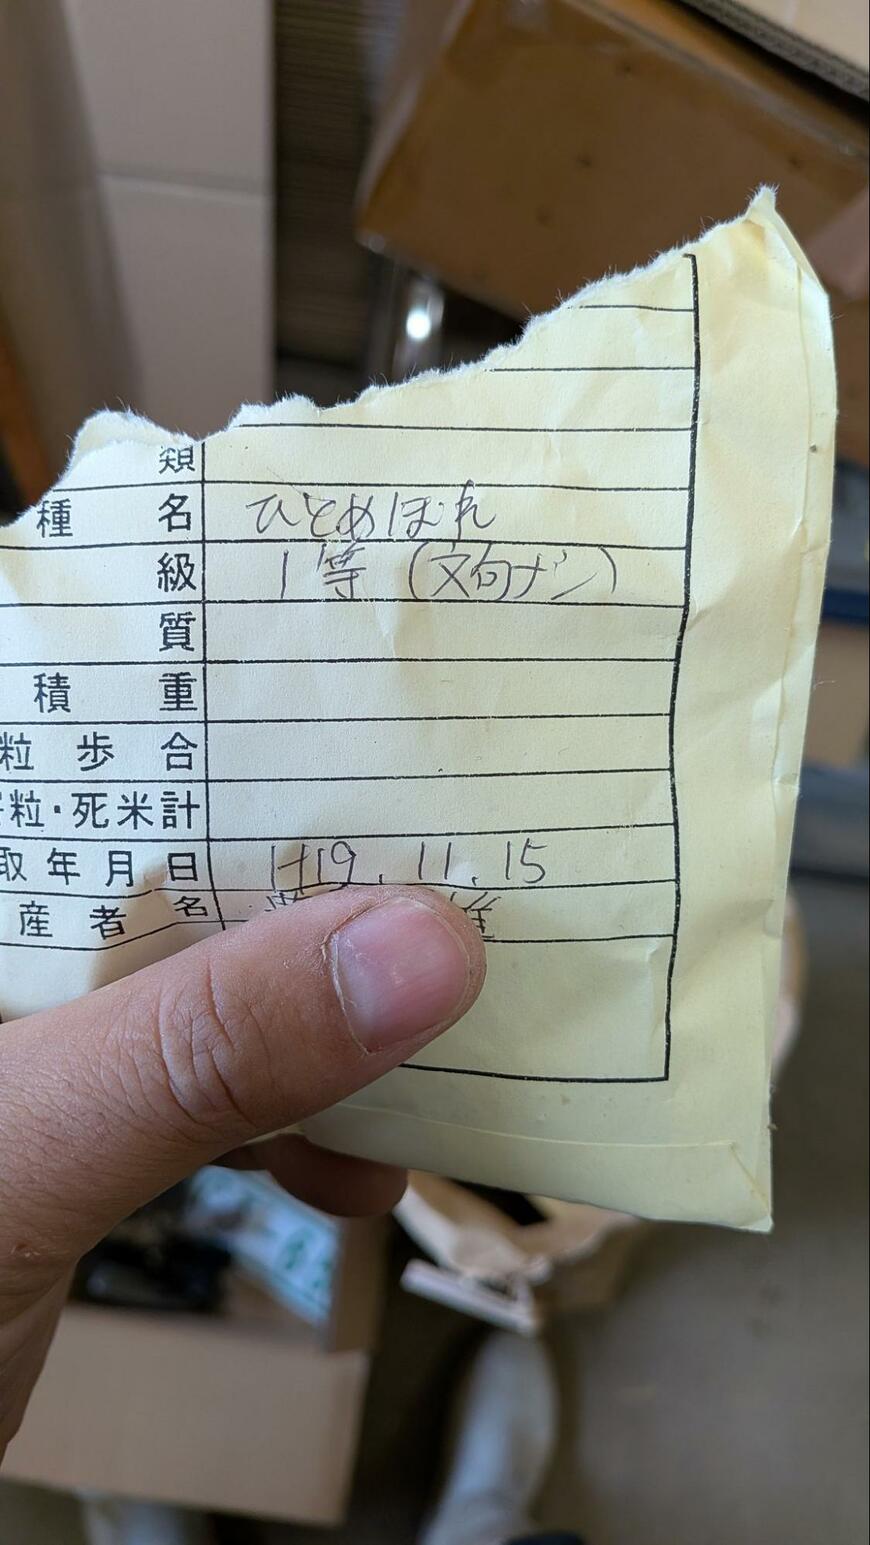 類
種名 ひとめぼれ
級 1等 (文句ナシ)
質
積重
粒歩合
粒・死米計
取年月日 H19.11.15
産者名